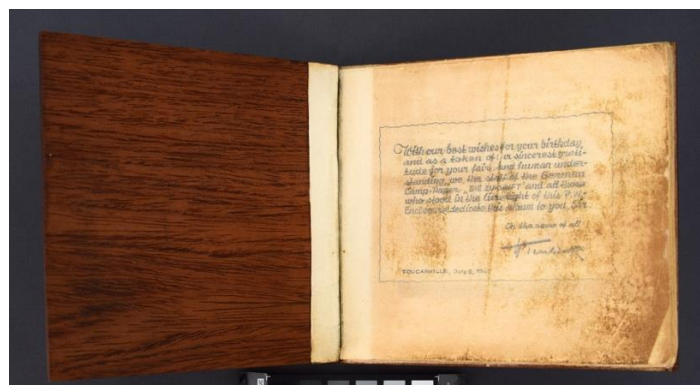 With our best wishes for your birthday
and as a token of our sincerest grati-
tude for your fair and human under-
standing we, the staff of the German
Camp-Paper "DIE ZUKUNFT" and all those
who stood in the limelight of this P.W.
Enclosure, dedicate this album to you, Sir.
In the name of all
FOUCARVILLE, July 5,